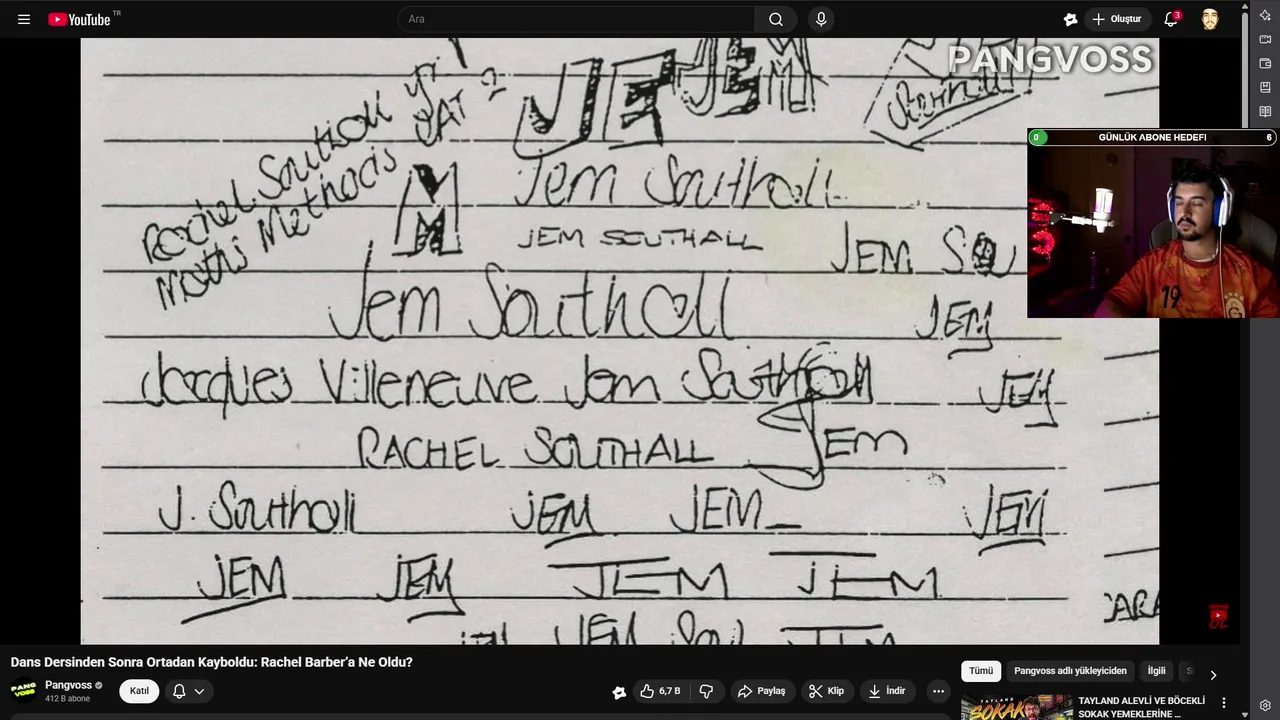 YouTube TR
Ara
Oluştur
3
PANGVOSS
JE JEM
Rachel Southall
Maths Methods
M
Jem Southall
JEM SOUTHALL
JEM SOU
GÜNLÜK ABONE HEDEFI
0
6
19
Jem Southall
JEM
Jacques Villeneuve Jem Southall
JEM
RACHEL SOUTHALL
JEM
J. Southall
JEM
JEM
JEM
JEM
JEM
JEM
JEM
JEM
Dans Dersinden Sonra Ortadan Kayboldu: Rachel Barber’a Ne Oldu?
Pangvoss
412 B abone
Katıl
6,7 B
Paylaş
Klip
İndir
Tümü
Pangvoss adlı yükleyiciden
İlgili
TAYLAND
SOKAK
TAYLAND ALEVLİ VE BÖCEKLİ
SOKAK YEMEKLERİNE ...